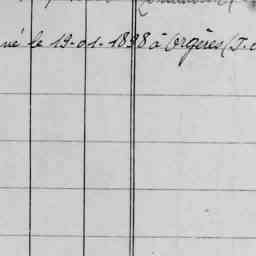 né le 19-01-1898 à Orgères (I.